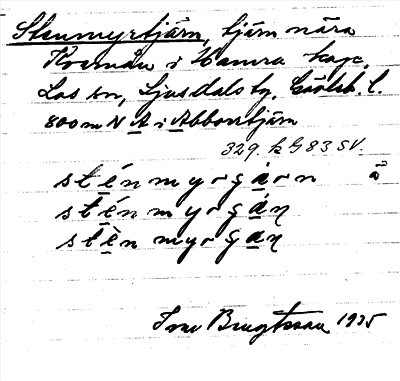 Stenmyrtjärn, tjärn nära
Kvarnån i Hamra kap.
Los sn, Ljusdals tg, Gävleb. l.
800 m N A i Abborrtjärn
329. k G 83 SV.
sténmyrgáon å
sténmyrgáη
stènmyrgaη
Bengtsson 1935